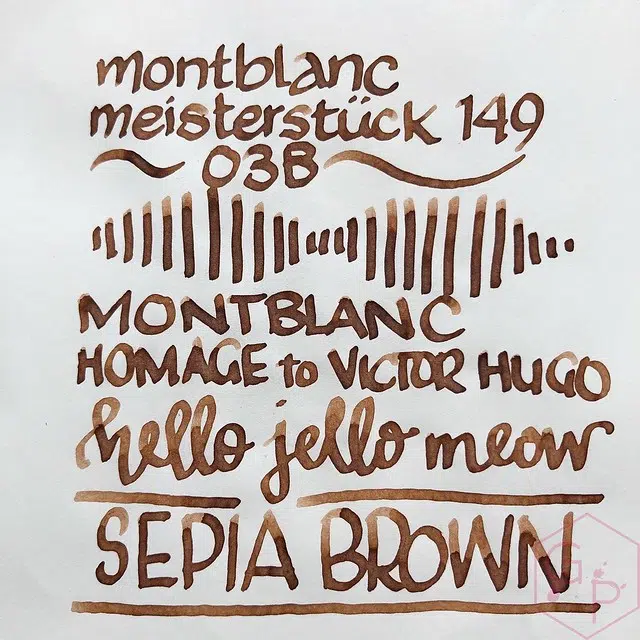 montblanc
meisterstück 149
03B
MONTBLANC
HOMAGE to VICTOR HUGO
hello jello meow
SEPIA BROWN
G
P